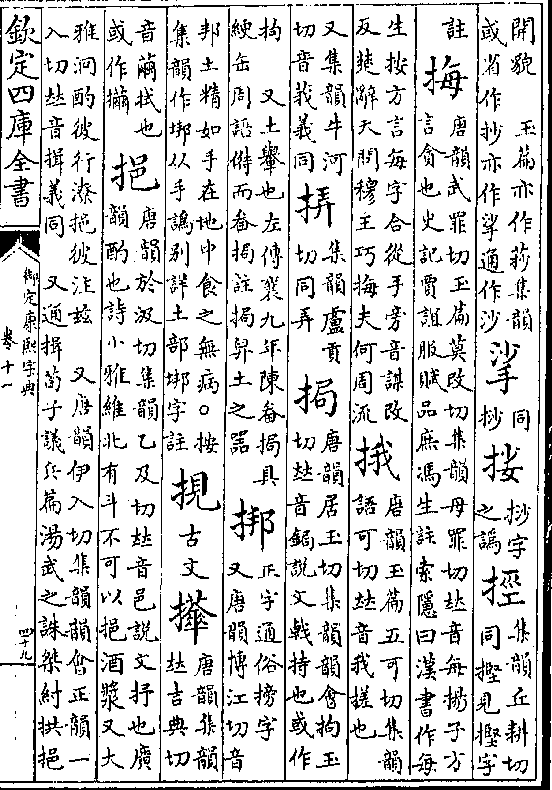 開貌　玉篇亦作莏集韻
或省作抄亦作挲通作沙
挲
同
抄
㧳
抄字
之譌
挳
集韻丘耕切
同摼見摼字
註
挴
唐韻武罪切玉篇莫改切集韻母罪切𠀤音每揚子方
言貪也史記賈誼服賦品庶馮生註索隱曰漢書作每
生按方言每字合從手旁音謀改
反楚辭天問穆王巧挴夫何周流
㧴
唐韻玉篇五可切集韻
語可切𠀤音我搓也
又集韻牛河
切音莪義同
挵
集韻盧貢
切同弄
挶
唐韻居玉切集韻韻會拘玉
切𠀤音鋦說文戟持也或作
拘　又土轝也左傳襄九年陳畚挶具
綆缶周語偫而畚挶註挶舁土之器
挷
正字通俗搒字
又唐韻博江切音
邦土精如手在地中食之無病○按
集韻作垹从手譌別詳土部垹字註
挸
古文
唐韻集韻
𠀤古典切
音繭拭也
或作
挹
唐韻於汲切集韻乙及切𠀤音邑說文抒也廣
韻酌也詩小雅維北有斗不可以挹酒漿又大
雅泂酌彼行潦挹彼注玆　又唐韻伊入切集韻韻會正韻一
入切𠀤音揖義同　又通揖荀子議兵篇湯武之誅桀紂拱挹
欽定四庫全書
御定康熙字典
卷十一
四十九